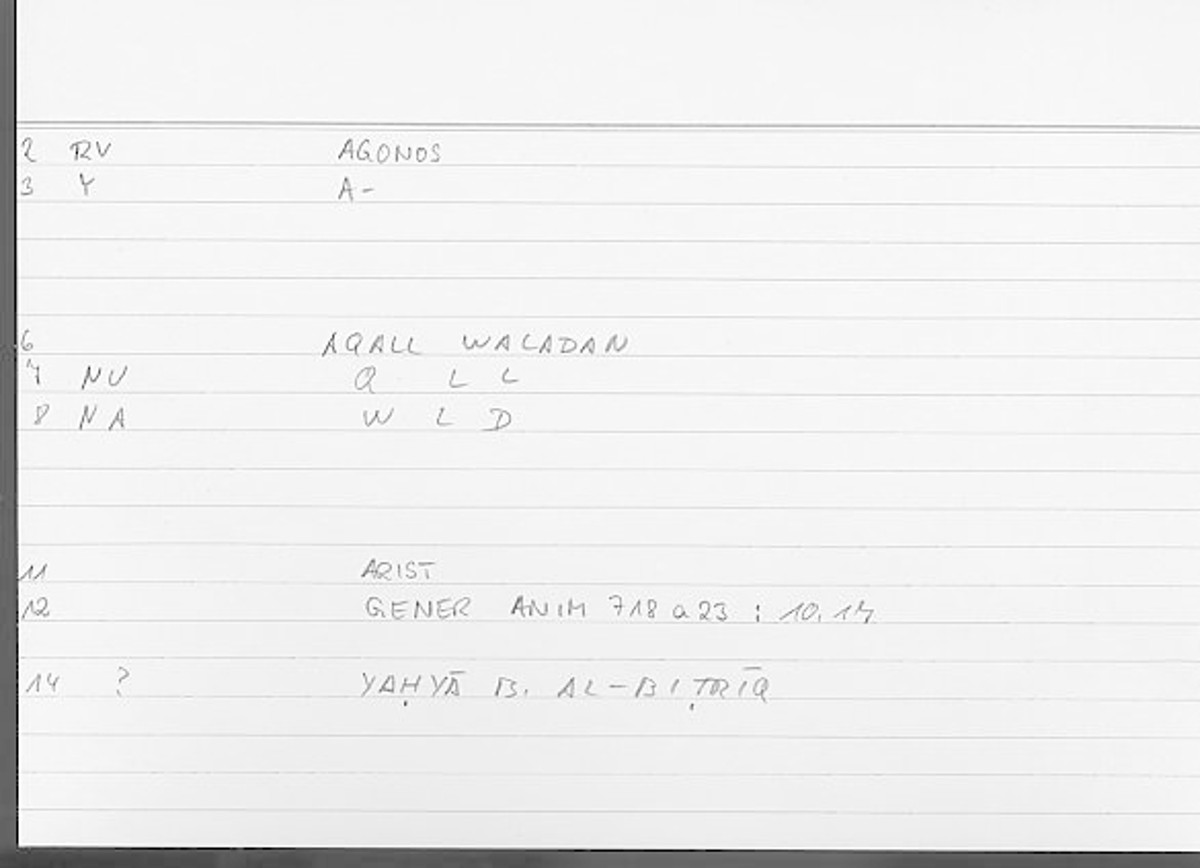 2 RV AGONOS
3 Y A-
6 AQALL WALADAN
7 NU Q L L
8 NA W L D
11 ARIST
12 GENER ANIM 718 a 23 : 10, 14
14 ? YAḤYĀ B. AL-BIṬRĪQ